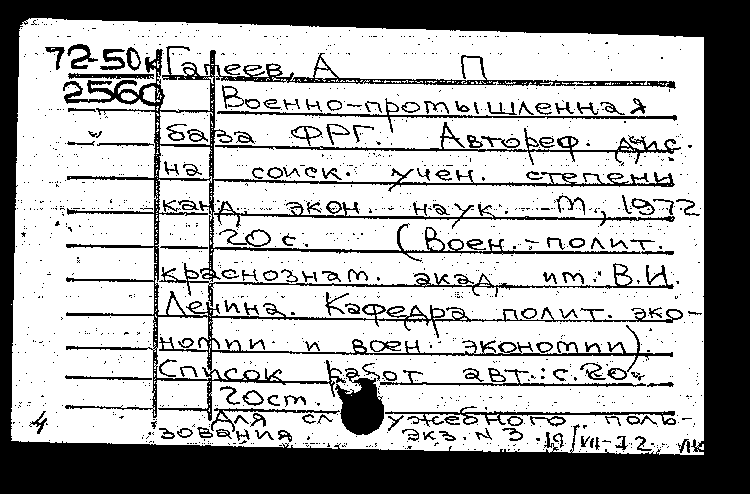 72-50к Гапеев, А П
2560 Военно-промышленная
база ФРГ. Автореф. дис.
на соиск. учен. степени
канд. экон. наук. М., 1972
20 с. (Воен.-полит.
краснознам. акад. им. В.И.
Ленина. Кафедра полит. эко-
номии и воен. экономии).
Список работ авт.: с. 20.
20 ст.
Для служебного поль-
4 зования. экз. N 3. 19/VII-72.